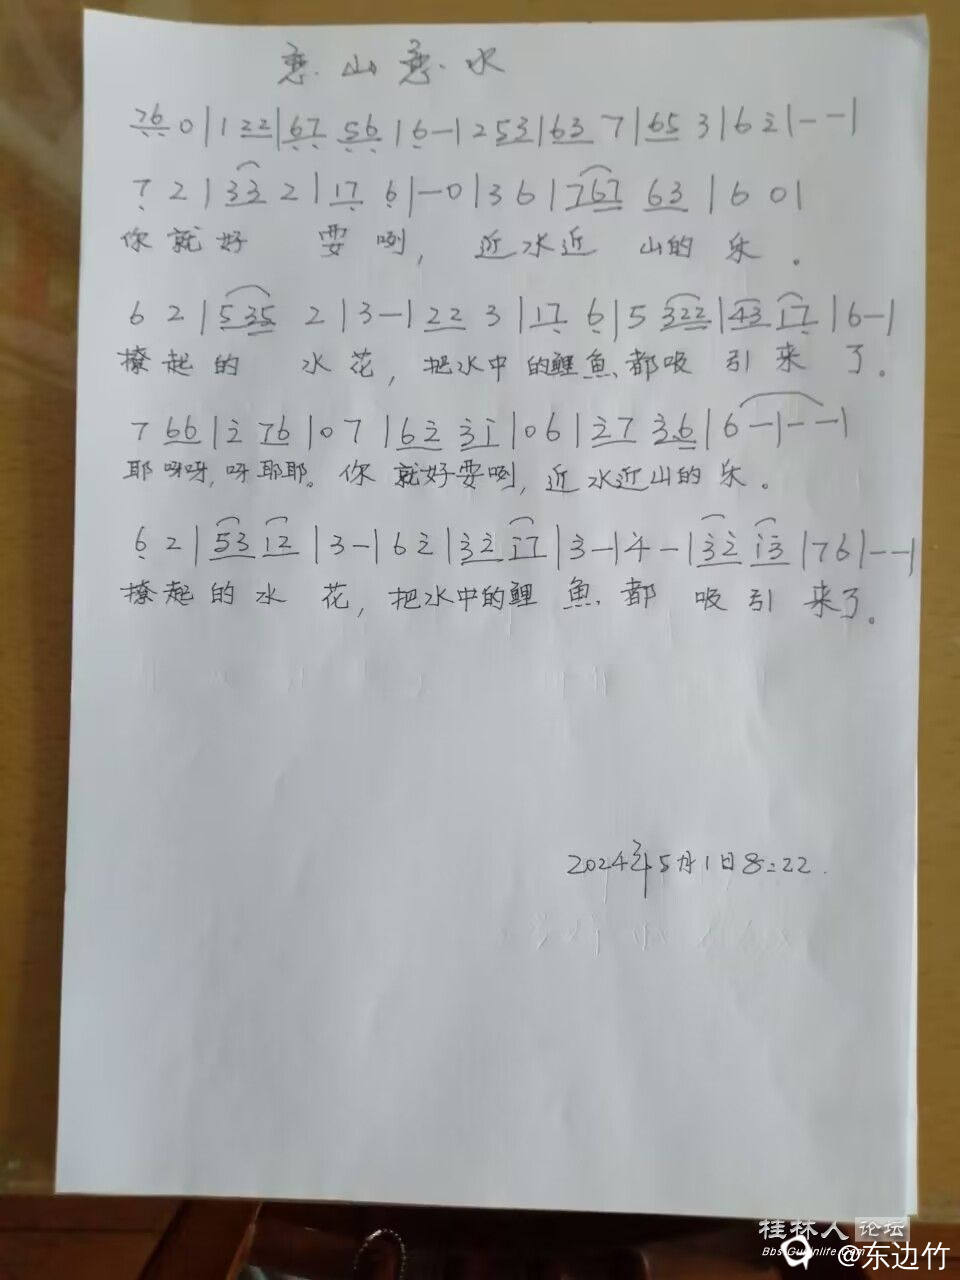 意.山意.水
76 0 | 1 22 | 67 56 | 6 - | 2 53 | 63 7 | 65 3 | 6 2 | - - |
7 2 | 33 2 | 17 6 | - 0 | 3 6 | 767 63 | 6 0 |
你就好 耍咧, 近水近 山的乐。
6 2 | 535 2 | 3 - | 22 3 | 17 6 | 5 322 | 43 17 | 6 - |
撩起的 水花, 把水中的鲤魚、都吸 引来了。
7 66 | 2 76 | 0 7 | 62 31 | 0 6 | 27 36 | 6 - | - - |
耶呀呀, 呀耶耶。你就好耍咧, 近水近山的乐。
6 2 | 53 12 | 3 - | 6 2 | 32 17 | 3 - | 4 - | 32 13 | 76 | - - |
撩起的水 花, 把水中的鲤 魚、都 吸引 来了。
2024年5月1日8:22.
桂林人论坛
Bbs.Guilinlife.Com
@东边竹